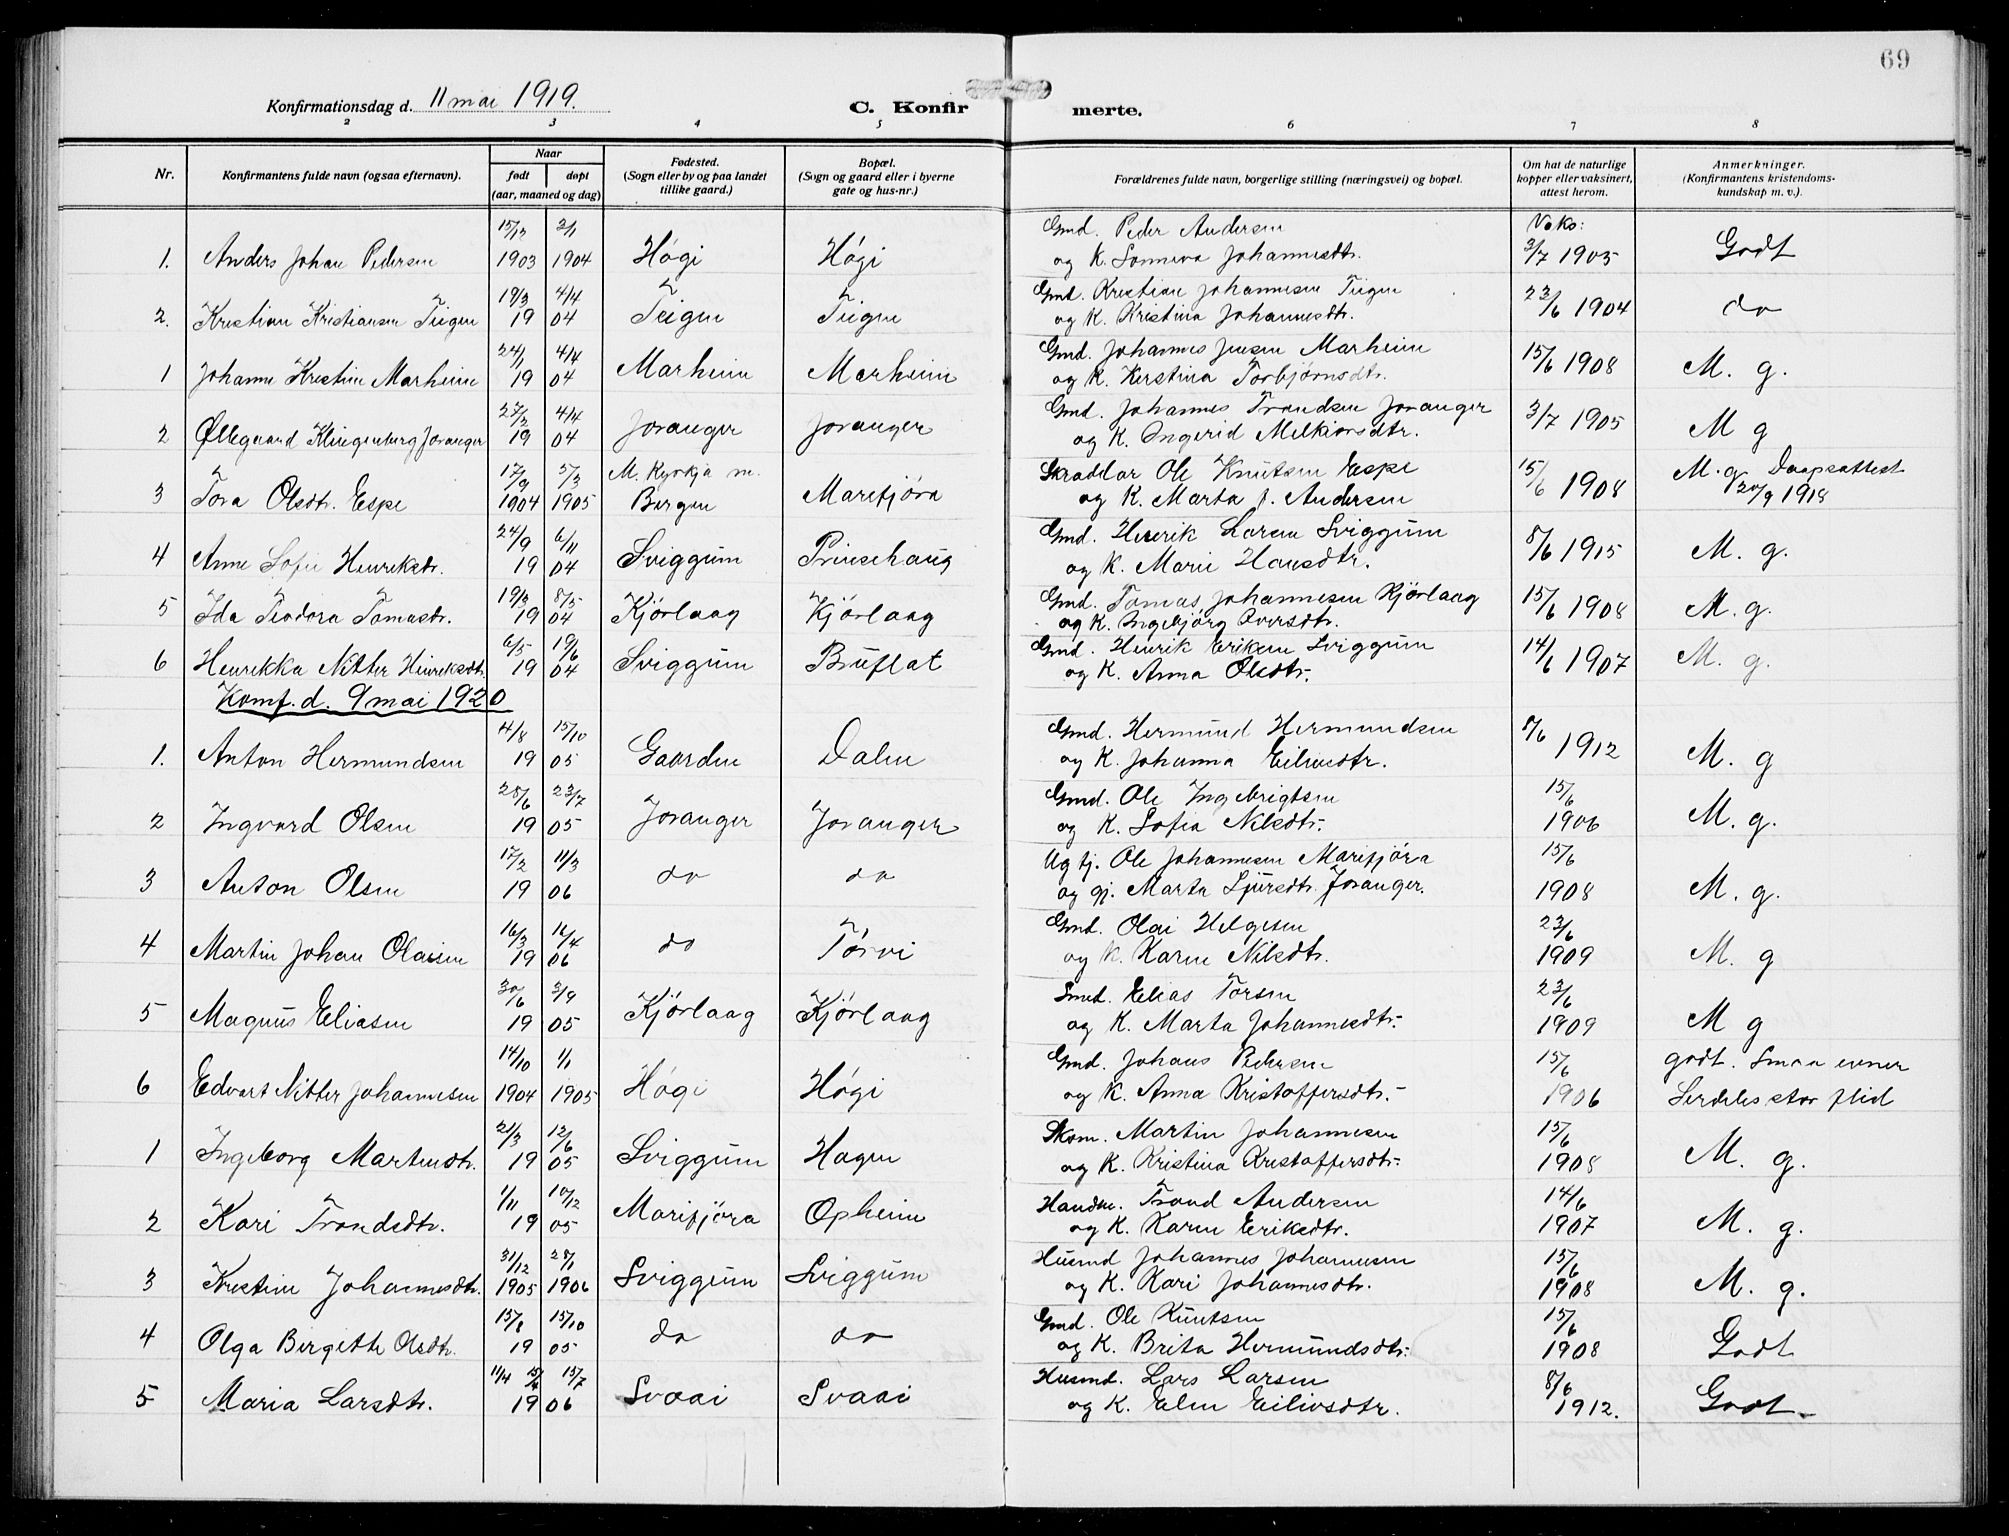 69
Konfirmationsdag d. 11 mai 1919.
C. Konfirmerte.
2 3 4 5 6 7 8
Nr. | Konfirmantens fulde navn (ogsaa efternavn). | Naar født døpt (aar, maaned og dag) | Fødested. (Sogn eller by og paa landet tillike gaard.) | Bopæl. (Sogn og gaard eller i byerne gate og hus-nr.) | Forældrenes fulde navn, borgerlige stilling (næringsvei) og bopæl. | Om hat de naturlige kopper eller vaksinert, attest herom. | Anmerkninger. (Konfirmantens kristendomskundskap m. v.).
15/12 2/1 Gmd. Peder Andersen Vaks:
1. Anders Johan Pedersen 1903 1904 Høgi Høgi og K. Sønneva Johannesdtr. 3/7 1905 Godt
19/3 4/4 Gmd. Kristian Johannesen Teigen
2. Kristian Kristiansen Teigen 19 04 Teigen Teigen og K. Kristina Johannesdtr. 23/6 1904 do
24/1 4/4 Gmd. Johannes Jensen Marheim
1 Johanne Kristine Marheim 19 04 Marheim Marheim og K. Kerstina Torbjørnsdtr. 15/6 1908 M. g.
27/2 4/4 Gmd. Johannes Trondsen Joranger
2 Øllegaard Klingenberg Joranger 19 04 Joranger Joranger og K. Ingerid Melkiorsdtr. 3/7 1905 M g
17/9 5/3 M. Kyrkja m. Skraddar Ole Knutsen Espe 15/6 M. g. Daapsattest
3 Tora Olsdtr. Espe 1904 1905 Bergen Marifjøra og K. Marta J. Andersen 1908 20/9 1918
24/9 6/11 Gmd. Henrik Larsen Sviggum
4 Anne Sofie Henriksdtr. 19 04 Sviggum Prinsehaug og K. Marie Hansdtr. 8/6 1915 M. g.
19/3 8/5 Gmd. Tomas Johannesen Kjörlaag
5 Ida Teodora Tomasdtr. 19 04 Kjörlaag Kjörlaag og K. Ingebjörg Iversdtr. 15/6 1908 M. g.
6/5 19/6 Gmd. Henrik Eriksen Sviggum
6 Henrikka Nitter Henriksdtr. 19 04 Sviggum Bruflat og K. Anna Olsdtr. 14/6 1907 M. g.
Komf. d. 9 mai 1920
4/8 15/10 Gmd. Hermund Hermundsen 8/6
1. Anton Hermundsen 19 05 Gaarden Dalen og K. Johanna Eilivsdtr. 1912 M. g
28/6 23/7 Gmd. Ole Ingebrigtsen 15/6
2 Ingvard Olsen 19 05 Joranger Joranger og K. Sofia Nilsdtr. 1906 M. g.
17/2 11/3 Ug tj. Ole Johannesen Marifjöra 15/6
3 Anton Olsen 19 06 do do og gj. Marta Sjursdtr. Joranger. 1908 M. g.
16/3 16/4 Gmd. Olai Helgesen 23/6
4 Martin Johan Olaisen 19 06 do Törvi og K. Karen Nilsdtr. 1909 M. g
30/6 3/9 Smed. Elias Torsen 23/6
5 Magnus Eliasen 19 05 Kjörlaag Kjörlaag og K. Marta Johannesdtr. 1909 M g
14/10 1/1 Gmd. Johans Pedersen 15/6 godt. Smaa evner
6 Edvart Nitter Johannesen 1904 1905 Høgi Høgi og K. Anna Kristoffersdtr. 1906 Serdeles stor flid
21/3 12/6 Skom. Martin Johannesen 15/6
1 Ingeborg Martinsdtr. 19 05 Sviggum Hagen og K. Kristina Kristoffersdtr. 1908 M. g.
1/11 10/12 Handsm. Trond Andersen 14/6
2 Kari Trondsdtr. 19 05 Marifjöra Opheim og K. Karen Eriksdtr. 1907 M. g.
31/12 28/1 Husmd Johannes Johannesen 15/6
3 Kristine Johannesdtr. 1905 1906 Sviggum Sviggum og K. Kari Johannesdtr. 1908 M. g.
15/8 15/10 Gmd. Ole Knutsen 15/6
4 Olga Birgitte Olsdtr. 19 05 do do og K. Brita Hermundsdtr. 1908 Godt
11/4 15/7 Husmd. Lars Larsen 8/6
5 Maria Larsdtr. 19 06 Svaai Svaai og K. Elen Eilivsdtr. 1912. Godt.